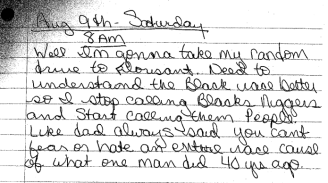 Aug 9th - Saturday
8 AM
Well I'm gonna take my random
drive to Flourisant. Need to
understand the Black race better
so I stop calling Blacks Niggers
and Start calling them People.
Like dad always said you cant
fear or hate an entire race cause
of what one man did 40 yrs ago.